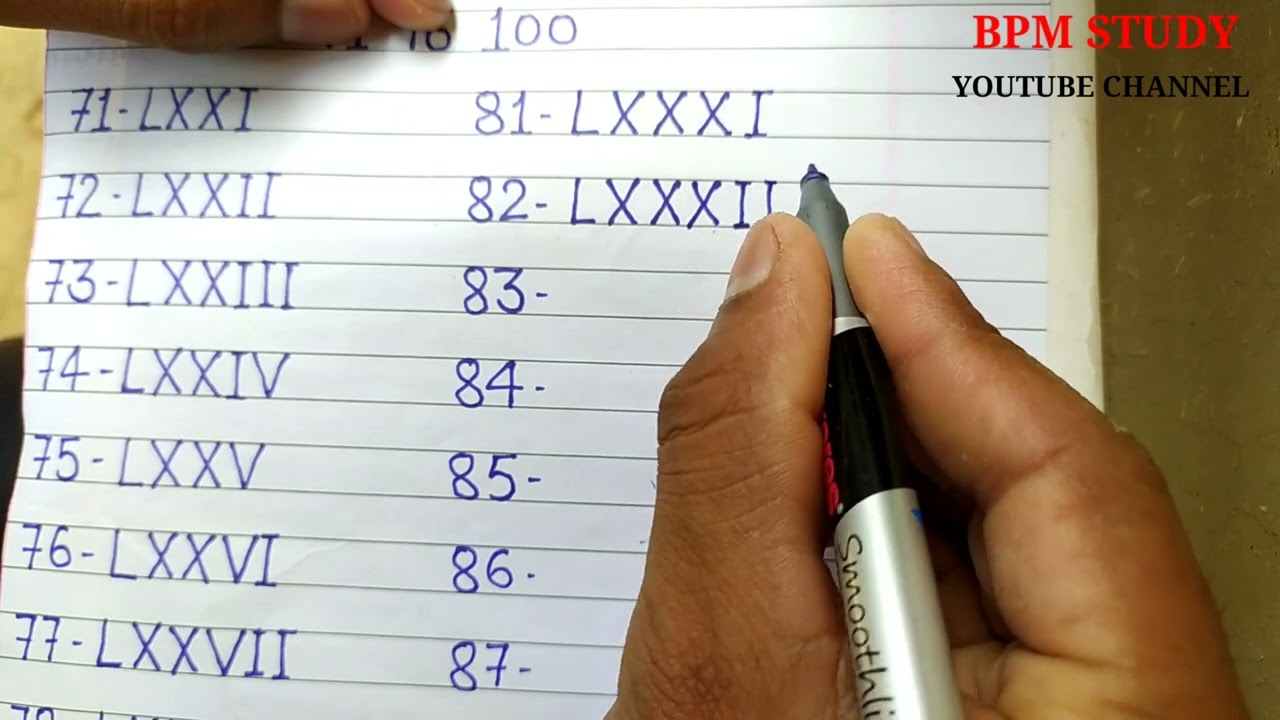 BPM STUDY
YOUTUBE CHANNEL
to 100
71-LXXI
72-LXXII
73-LXXIII
74-LXXIV
75-LXXV
76-LXXVI
77-LXXVII
81-LXXXI
82-LXXXII
83-
84-
85-
86-
87-